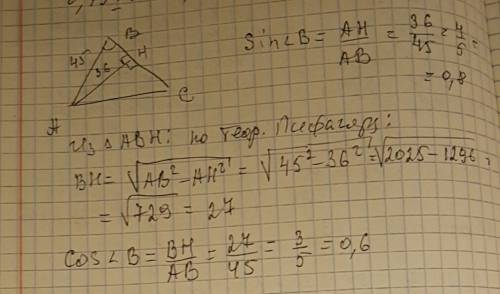 B
45 H
36
A C
Sin∠B = AH/AB = 36/45 = 4/5 =
= 0,8
Из △ ABH: по теор. Пифагора:
BH = √(AB² - AH²) = √(45² - 36²) = √(2025 - 1296) =
= √729 = 27
Cos∠B = BH/AB = 27/45 = 3/5 = 0,6